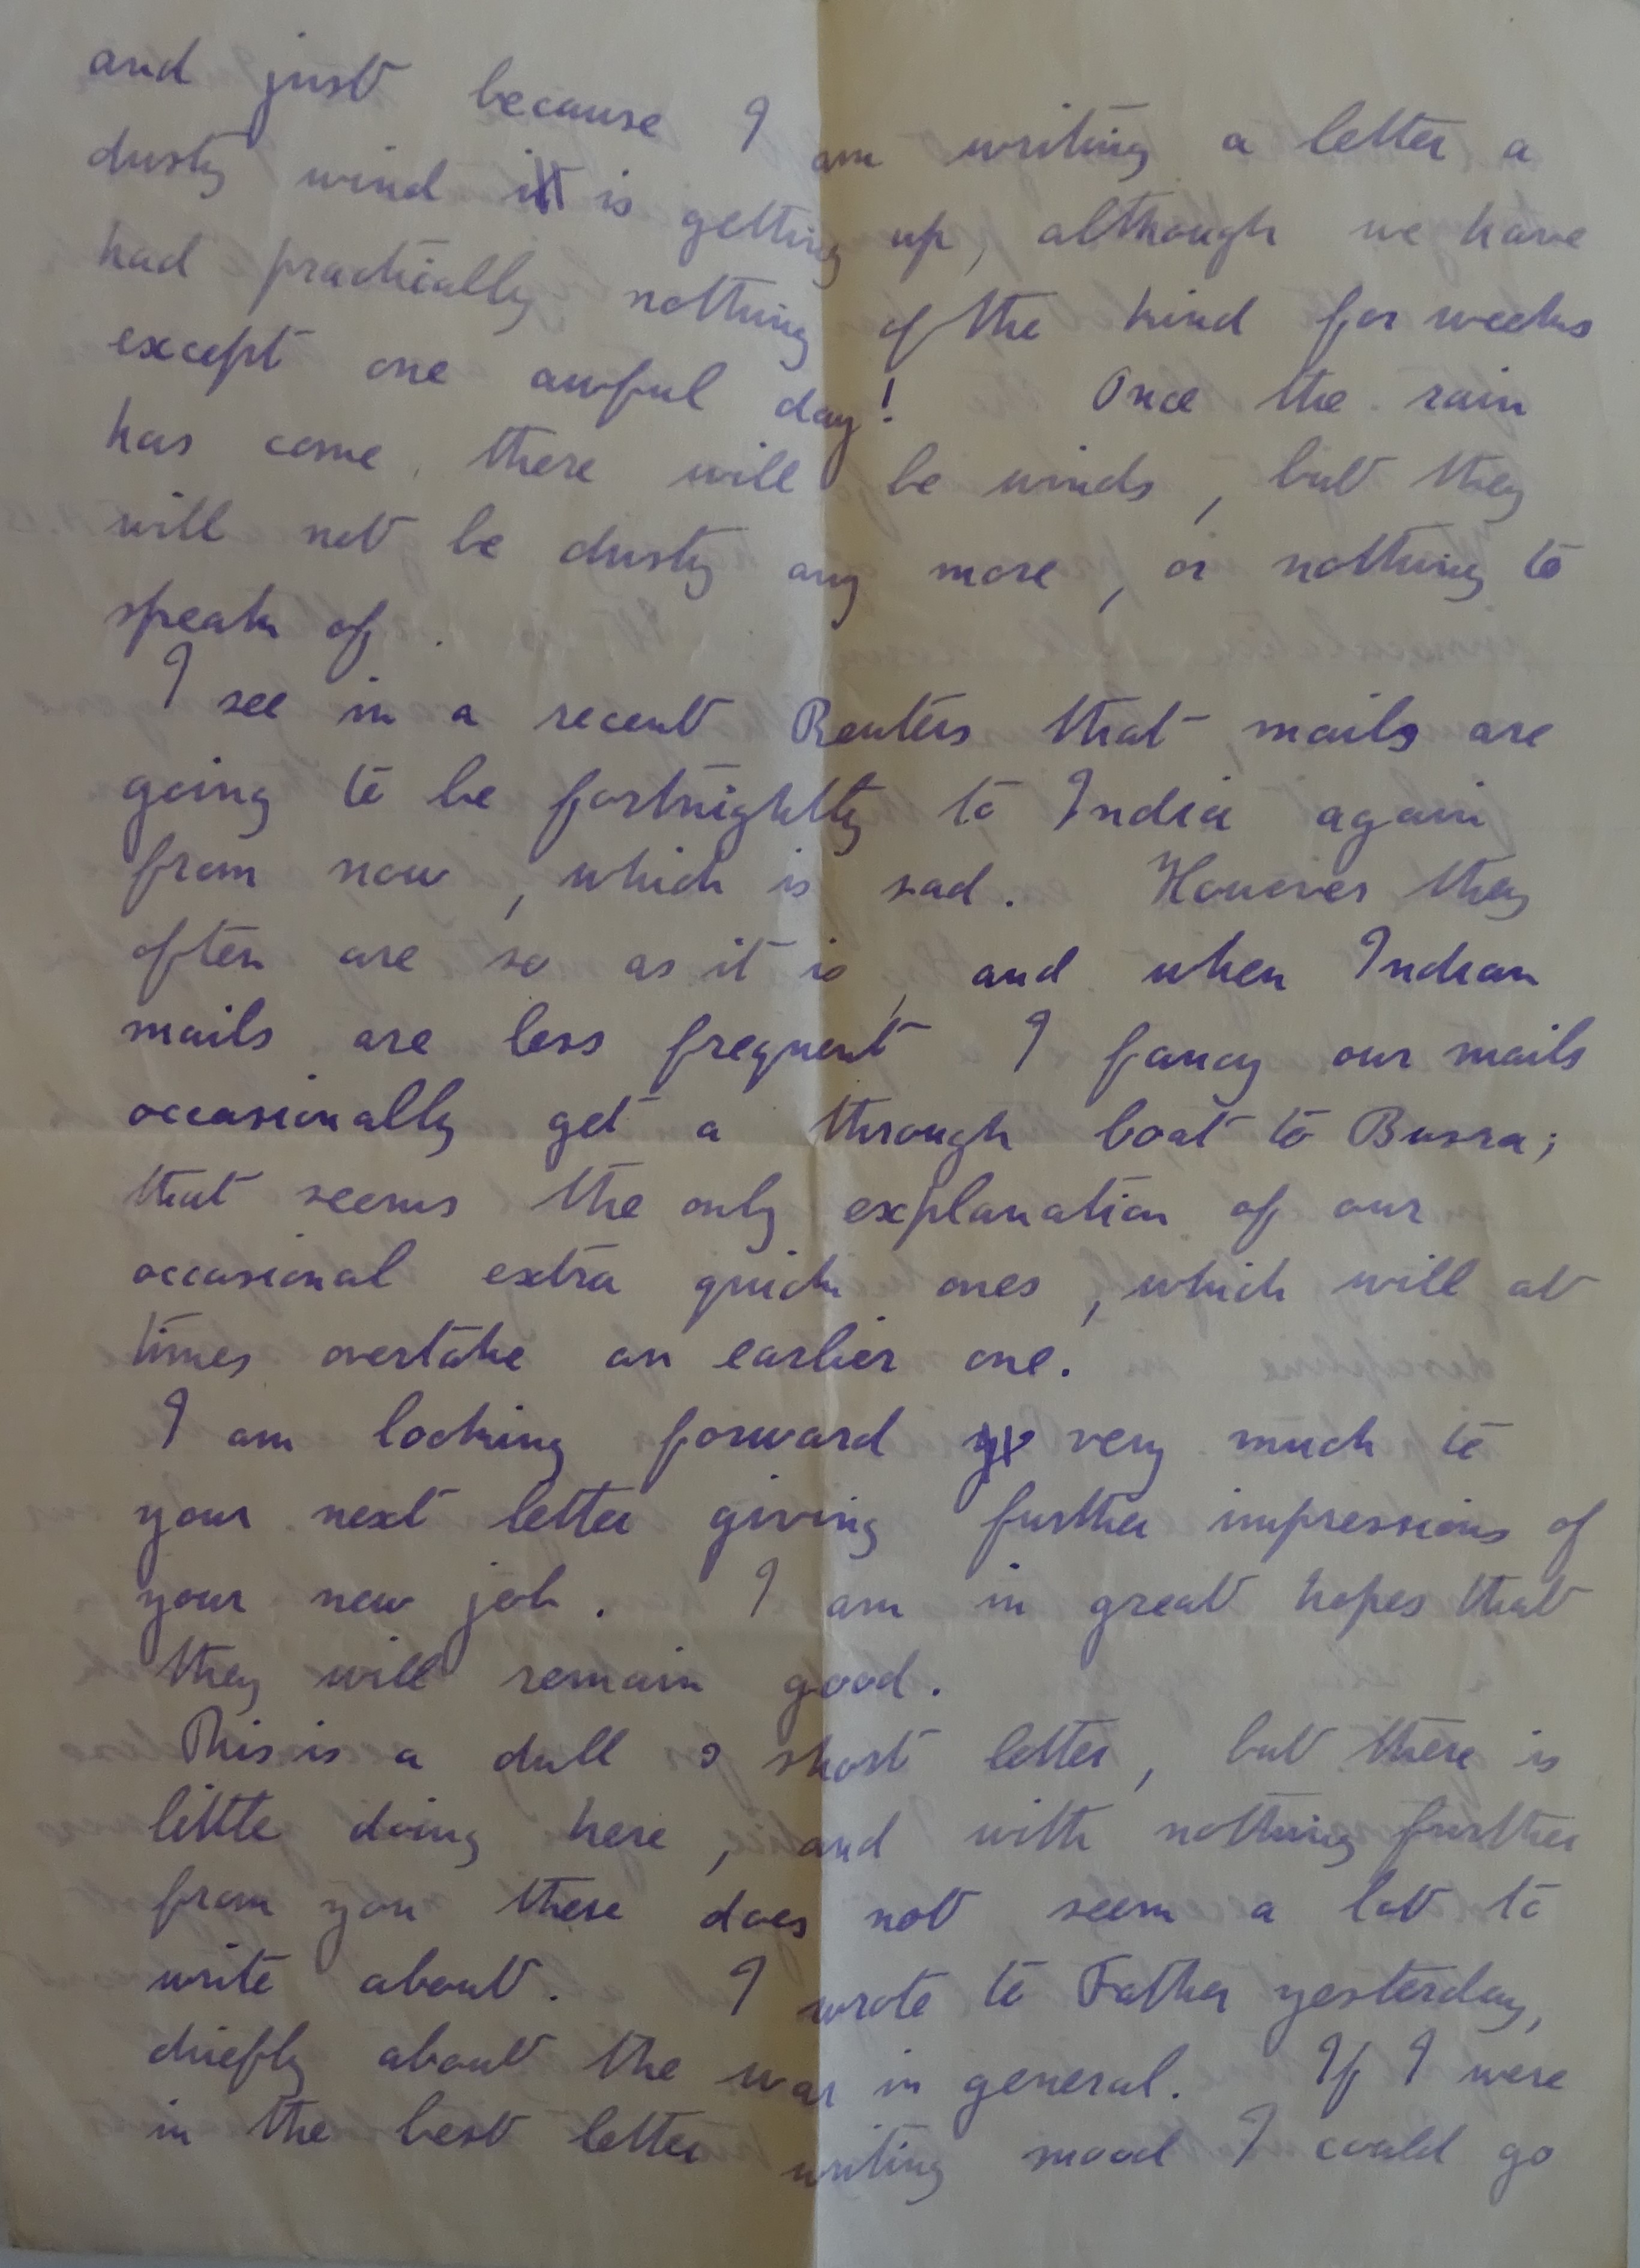 and just because I am writing a letter a
dusty wind is getting up, although we have
had practically nothing of the kind for weeks
except one awful day! Once the rain
has come, there will be winds, but they
will not be dusty any more, or nothing to
speak of.
I see in a recent Reuters that mails are
going to be fortnightly to India again
from now, which is sad. However they
often are so as it is, and when Indian
mails are less frequent I fancy our mails
occasionally get a through boat to Busra;
that seems the only explanation of our
occasional extra quick ones, which will at
times overtake an earlier one.
I am looking forward very much to
your next letter giving further impressions of
your new job. I am in great hopes that
they will remain good.
This is a dull & short letter, but there is
little doing here, and with nothing further
from you there does not seem a lot to
write about. I wrote to Father yesterday,
chiefly about the war in general. If I were
in the best letter writing mood I could go